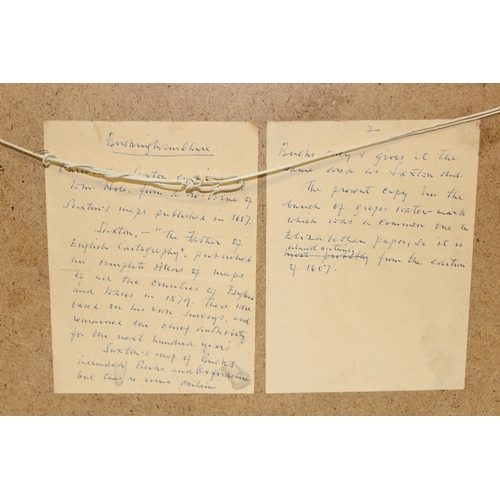 Buckinghamshire
Saxton
Wm Hole, from
Saxton's maps published in 1607
Saxton, - "The Father of
English Cartography", published
his complete Atlas of maps
of all the Counties of England
and Wales in 1579. These were
based on his own surveys, and
remained the chief authority
for the next hundred years
Saxton's map of Bucks
included Berks and Oxfordshire
but this is
2
Bucks only & gives it the
same area as Saxton did
The present copy has the
bunch of grapes water-mark
which was a common one in
Elizabethan paper, so it is
almost certainly
most probably from the edition
of 1607.